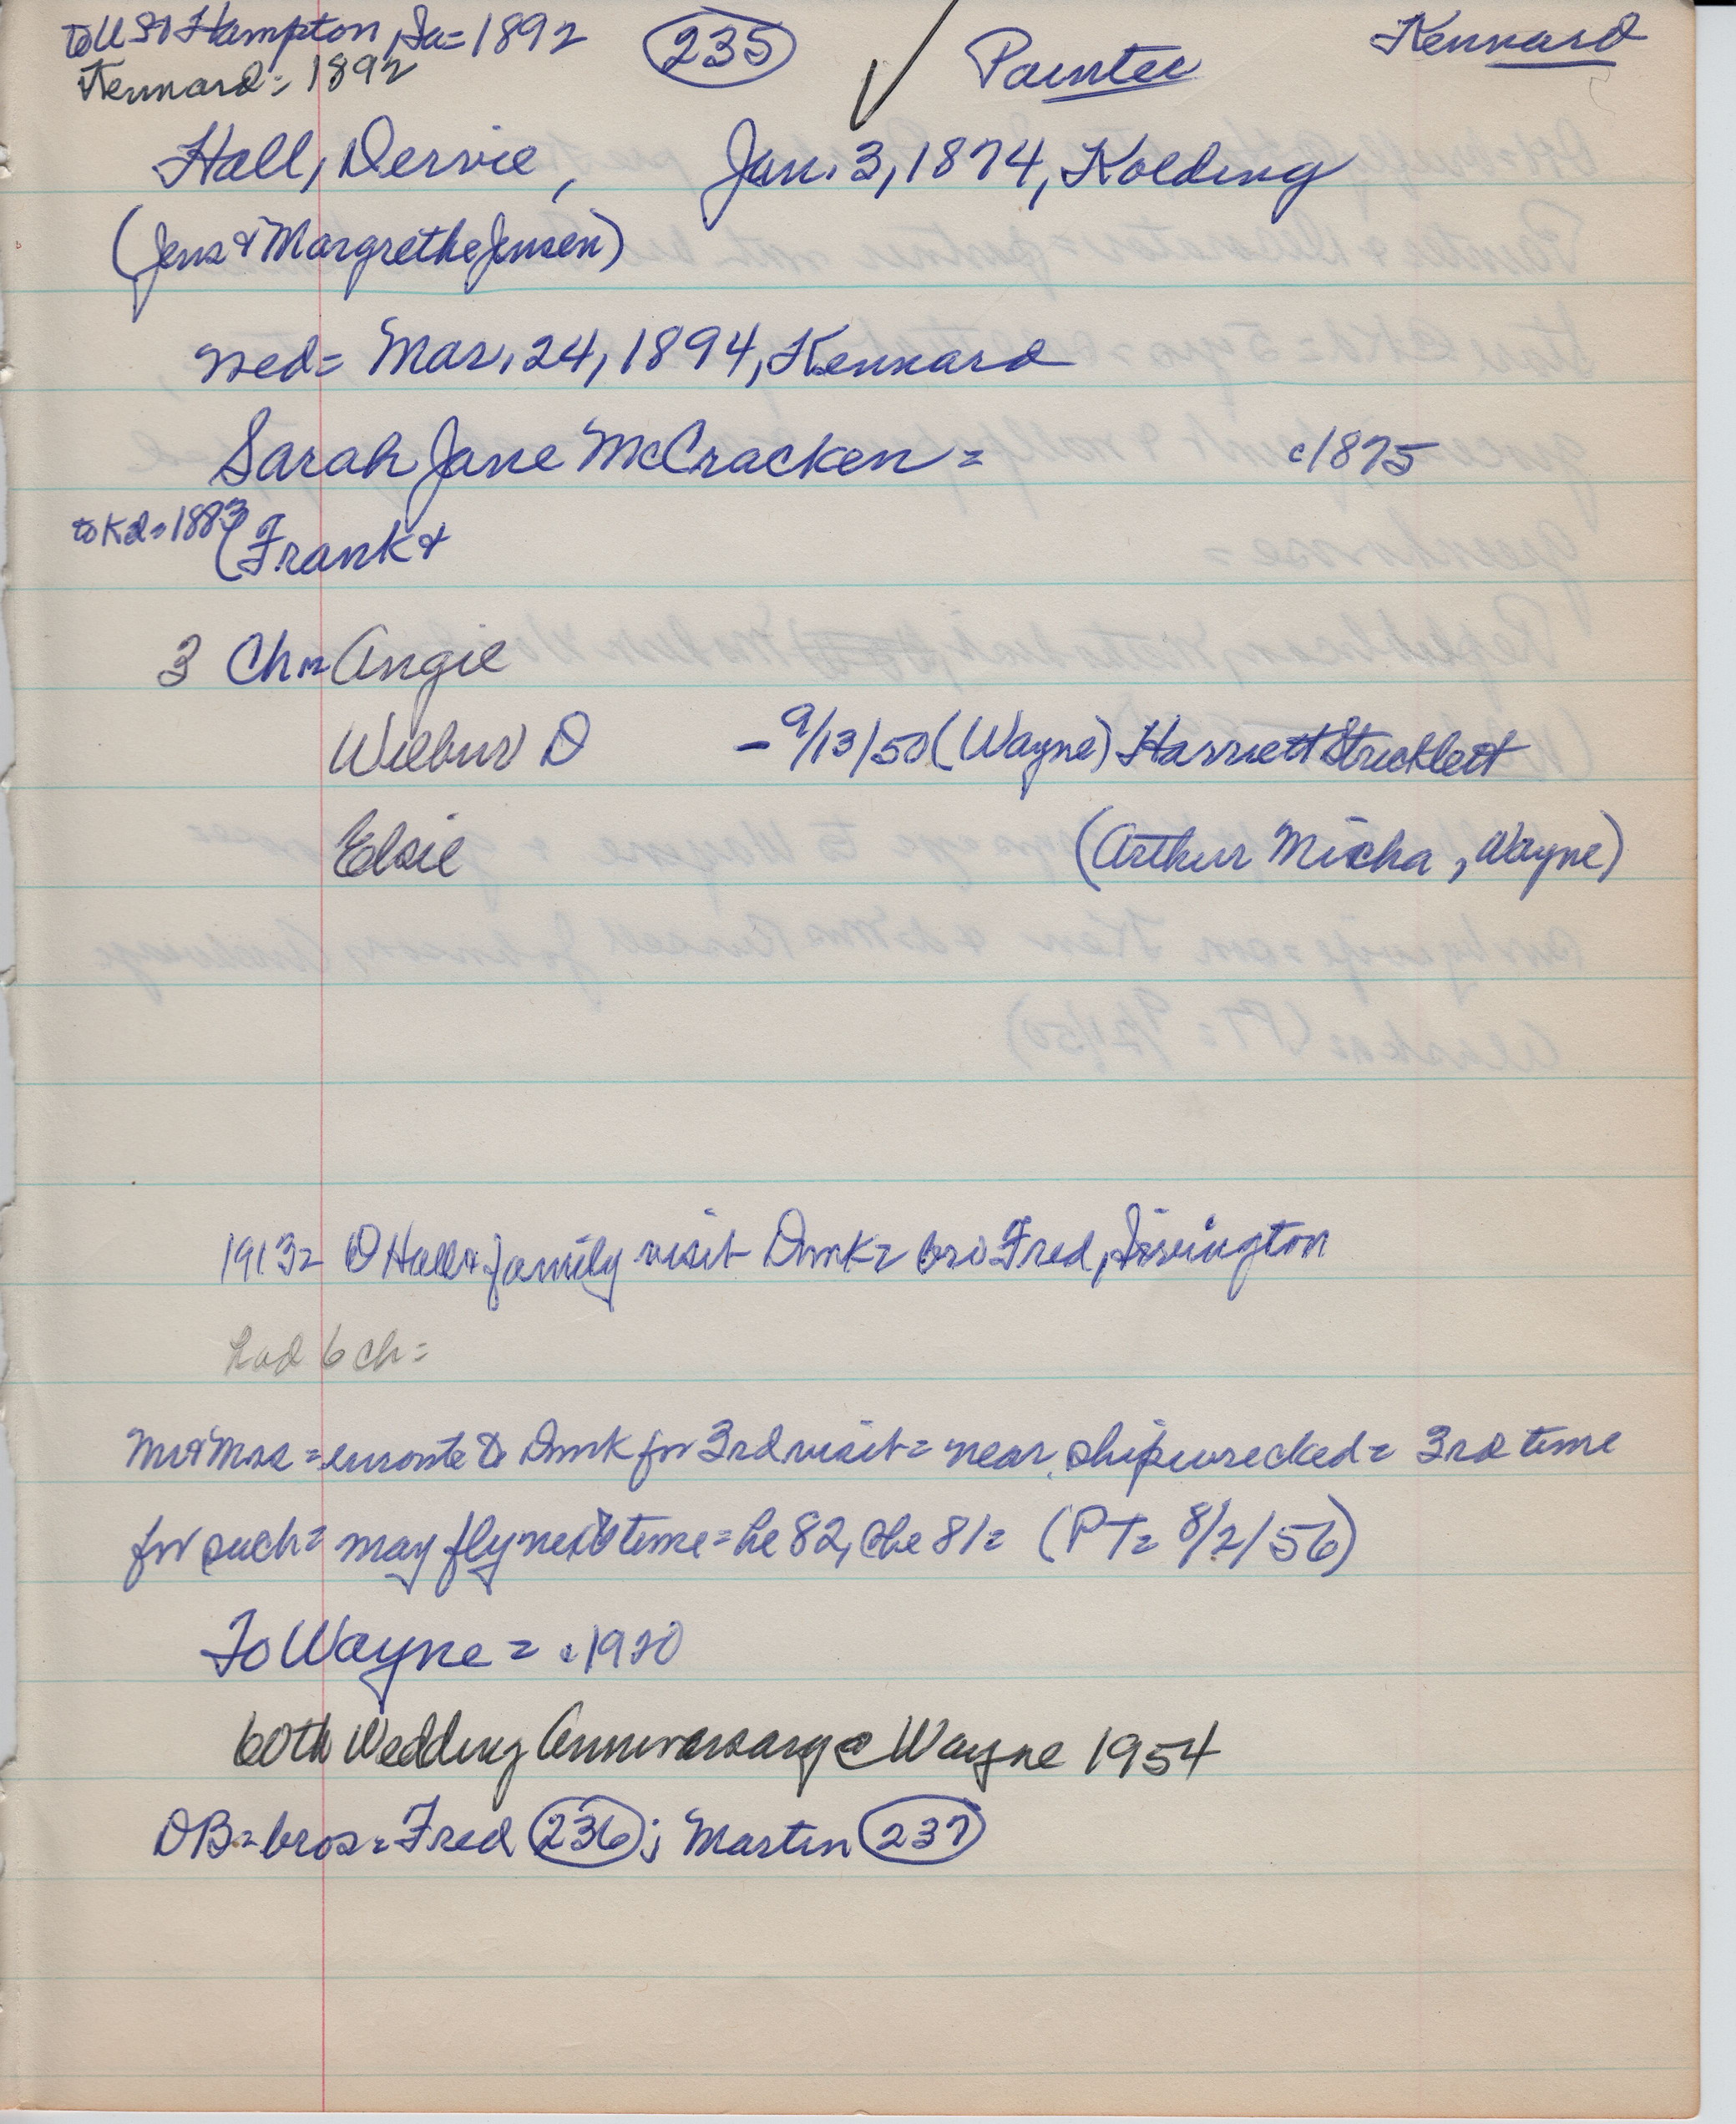 to US & Hampton, Ia = 1892
Kennard = 1892
235
Painter
Kennard
Hall, Dervie, Jan. 3, 1874, Kolding
(Jens & Margrethe Jensen)
med = Mar. 24, 1894, Kennard
Sarah Jane McCracken = c1875
to Kd = 1883
(Frank &
3 Ch = Angie
Wilbur D - 9/13/50 (Wayne) Harriett Stricklett
Elsie (Arthur Micha, Wayne)
1913 = D Hall & family visit Dmk = bro Fred,
had 6 ch =
Mr & Mrs = enroute to Dmk for 3rd visit = near shipwrecked = 3rd time
for such = may fly next time = he 82, she 81 = (PT = 8/2/56)
To Wayne = c1920
60th Wedding Anniversary @ Wayne 1954
DB = bros = Fred 236; Martin 237